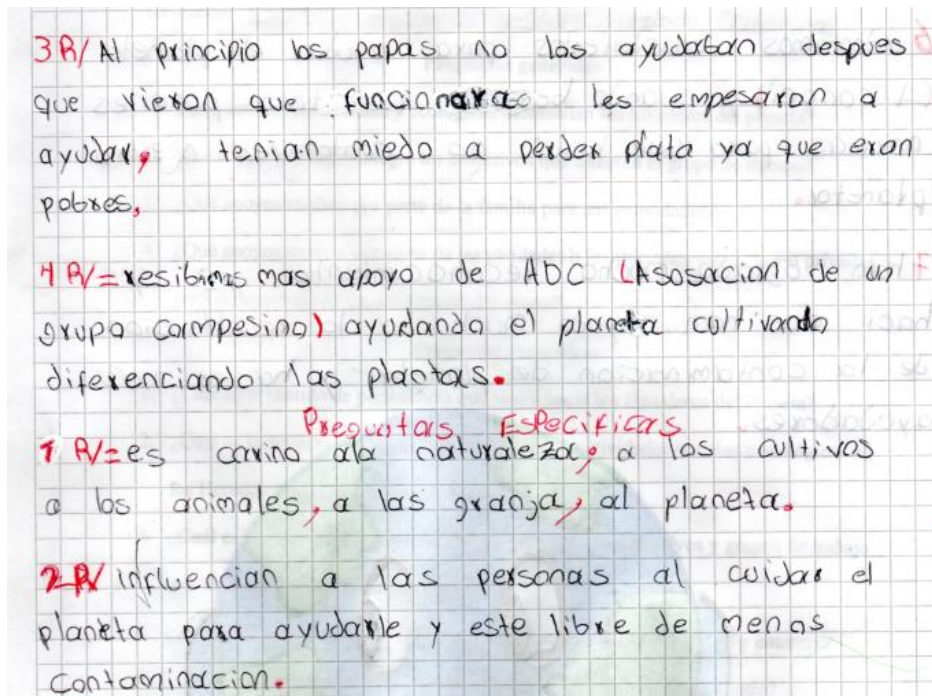 3 R/ Al principio los papas no los ayudaban despues
que vieron que funcionaraso les empesaron a
ayudar, tenian miedo a perder plata ya que eran
pobres,
4 R/= resibimos mas apoyo de ADC (Asosacion de un
grupo campesino) ayudando el planeta cultivando
diferenciando las plantas.
Preguntas Especificas
1 R/= es carino ala naturaleza, a los cultivos
a los animales, a las granja, al planeta.
2 R/ influencian a las personas al cuidar el
planeta para ayudarle y este libre de menos
contaminacion.